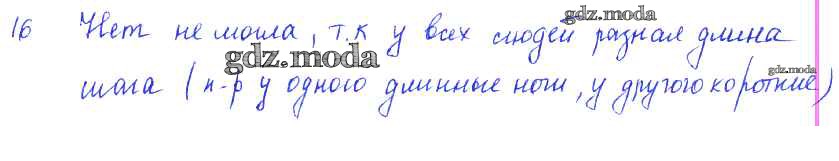 16 Нет не могла, т.к у всех людей разная длина
шага (п-р у одного длинные ноги, у другого короткие)
gdz.moda
gdz.moda
gdz.moda